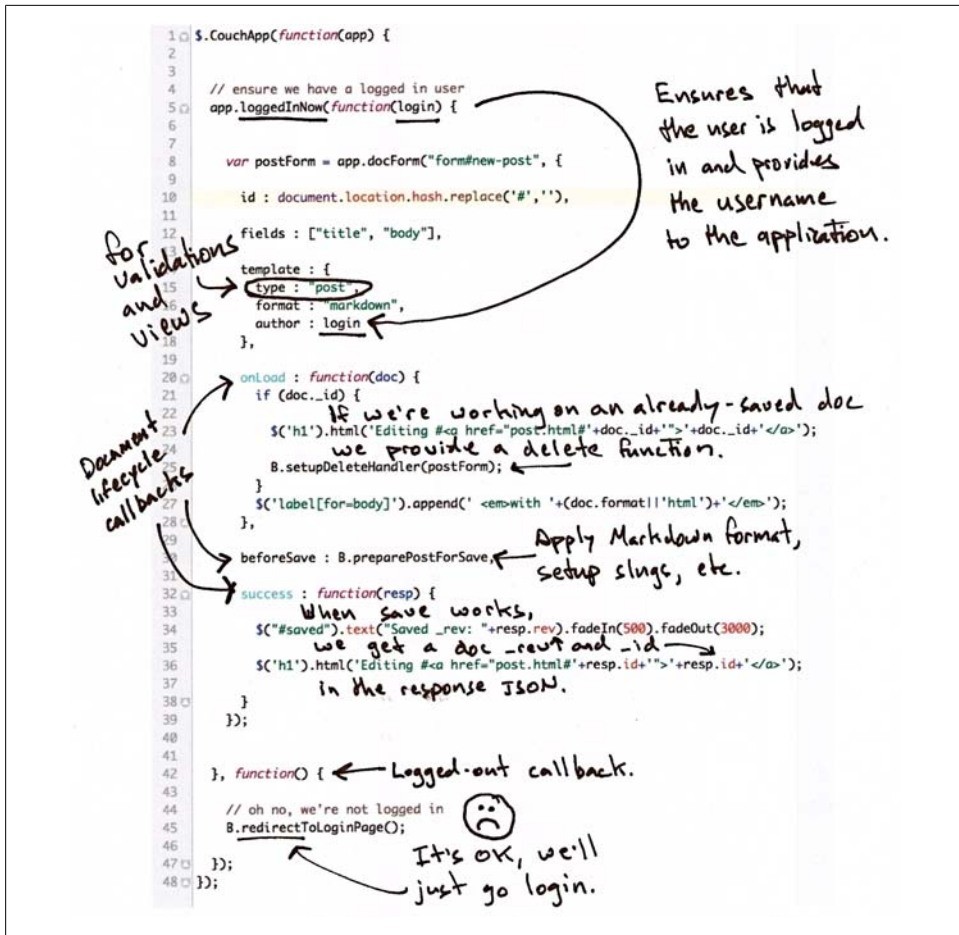 1 $.CouchApp(function(app) {
2
3
4 // ensure we have a logged in user
5 app.loggedInNow(function(login) {
6
7
8 var postForm = app.docForm("form#new-post", {
9
10 id : document.location.hash.replace('#',''),
11
12 fields : ["title", "body"],
13
template : {
15 type : "post",
16 format : "markdown",
author : login
18 },
19
20 onLoad : function(doc) {
21 if (doc._id) {
22
23 $('h1').html('Editing #<a href="post.html#'+doc._id+'">'+doc._id+'</a>');
24
25 B.setupDeleteHandler(postForm);
}
27 $('label[for=body]').append(' <em>with '+(doc.format||'html')+'</em>');
28 },
29
30 beforeSave : B.preparePostForSave,
31
32 success : function(resp) {
33
34 $("#saved").text("Saved _rev: "+resp.rev).fadeIn(500).fadeOut(3000);
35
36 $('h1').html('Editing #<a href="post.html#'+resp.id+'">'+resp.id+'</a>');
37
38 }
39 });
40
41
42 }, function() {
43
44 // oh no, we're not logged in
45 B.redirectToLoginPage();
46
47 });
48 });
Ensures that
the user is logged
in and provides
the username
to the application.
for
validations
and
views
Document
lifecycle
callbacks
If we're working on an already-saved doc
we provide a delete function.
Apply Markdown format,
setup slugs, etc.
When save works,
we get a doc _rev and _id
in the response JSON.
Logged-out callback.
It's OK, we'll
just go login.